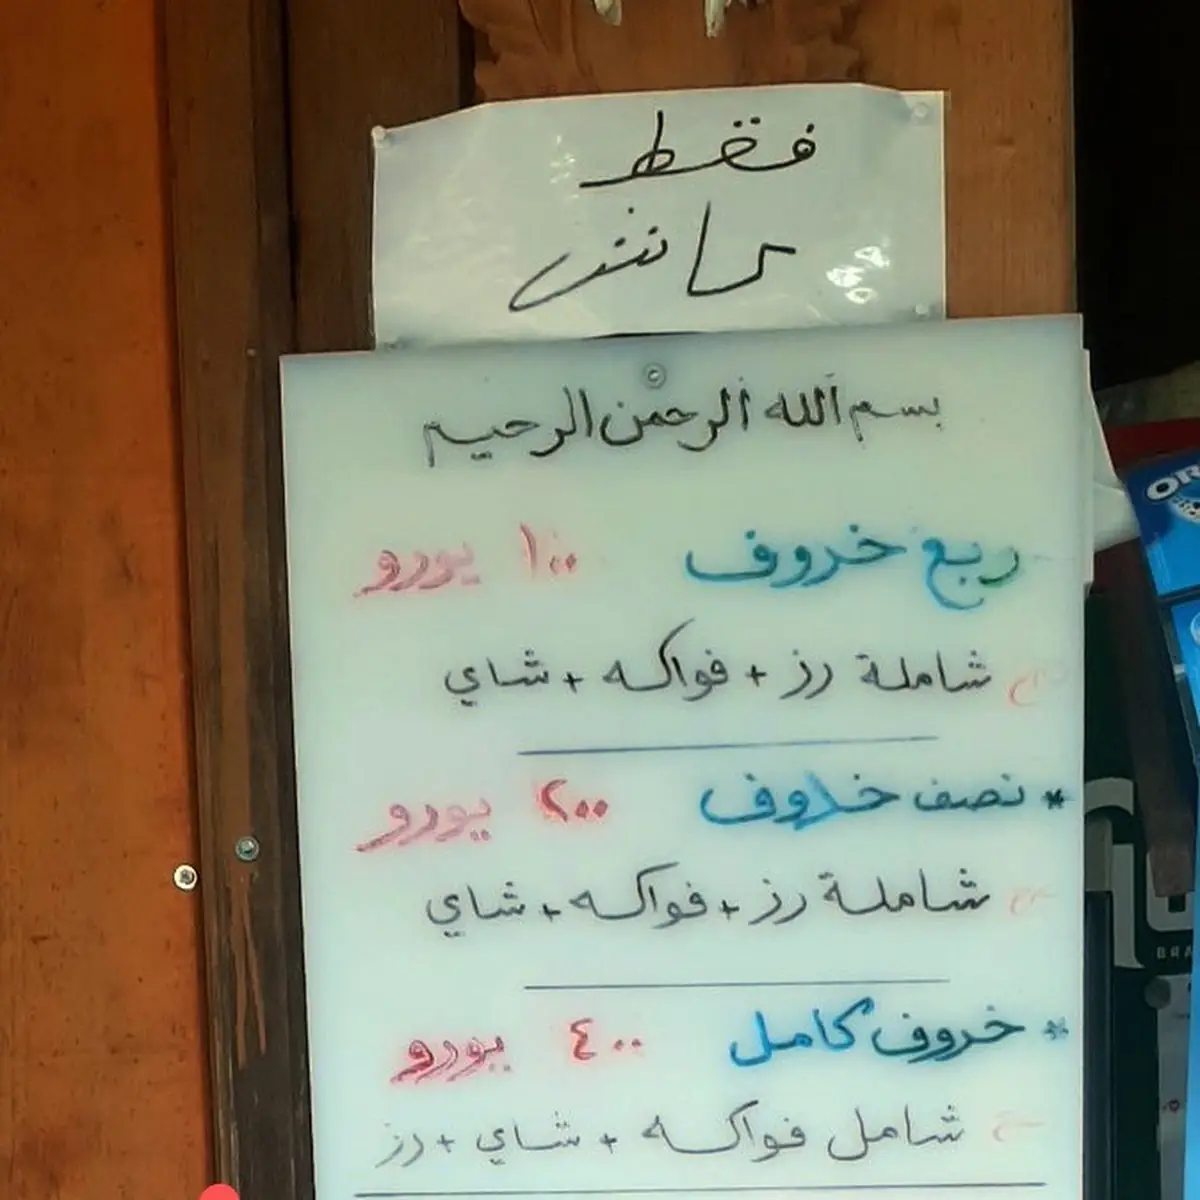 فقط
كانش
بسم الله الرحمن الرحيم
ربع خروف ١٠٠ يورو
شاملة رز + فواكه + شاي
* نصف خروف ٢٠٠ يورو
شاملة رز + فواكه + شاي
* خروف كامل ٤٠٠ يورو
شامل فواكه + شاي + رز